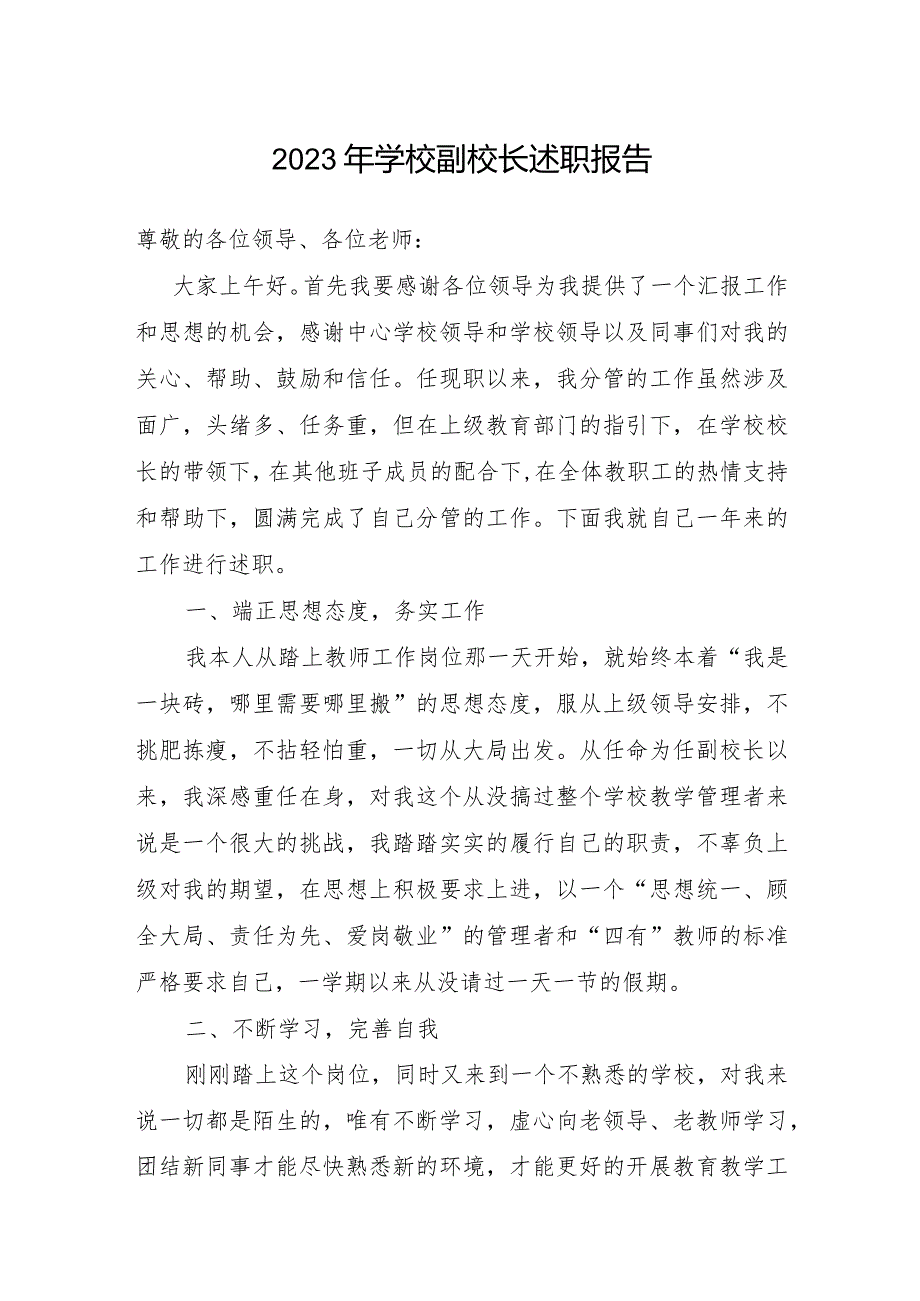 2023年学校副校长述职报告
尊敬的各位领导、各位老师：
大家上午好。首先我要感谢各位领导为我提供了一个汇报工作
和思想的机会，感谢中心学校领导和学校领导以及同事们对我的
关心、帮助、鼓励和信任。任现职以来，我分管的工作虽然涉及
面广，头绪多、任务重，但在上级教育部门的指引下，在学校校
长的带领下，在其他班子成员的配合下,在全体教职工的热情支持
和帮助下，圆满完成了自己分管的工作。下面我就自己一年来的
工作进行述职。
一、端正思想态度，务实工作
我本人从踏上教师工作岗位那一天开始，就始终本着“我是
一块砖，哪里需要哪里搬”的思想态度，服从上级领导安排，不
挑肥拣瘦，不拈轻怕重，一切从大局出发。从任命为任副校长以
来，我深感重任在身，对我这个从没搞过整个学校教学管理者来
说是一个很大的挑战，我踏踏实实的履行自己的职责，不辜负上
级对我的期望，在思想上积极要求上进，以一个“思想统一、顾
全大局、责任为先、爱岗敬业”的管理者和“四有”教师的标准
严格要求自己，一学期以来从没请过一天一节的假期。
二、不断学习，完善自我
刚刚踏上这个岗位，同时又来到一个不熟悉的学校，对我来
说一切都是陌生的，唯有不断学习，虚心向老领导、老教师学习，
团结新同事才能尽快熟悉新的环境，才能更好的开展教育教学工